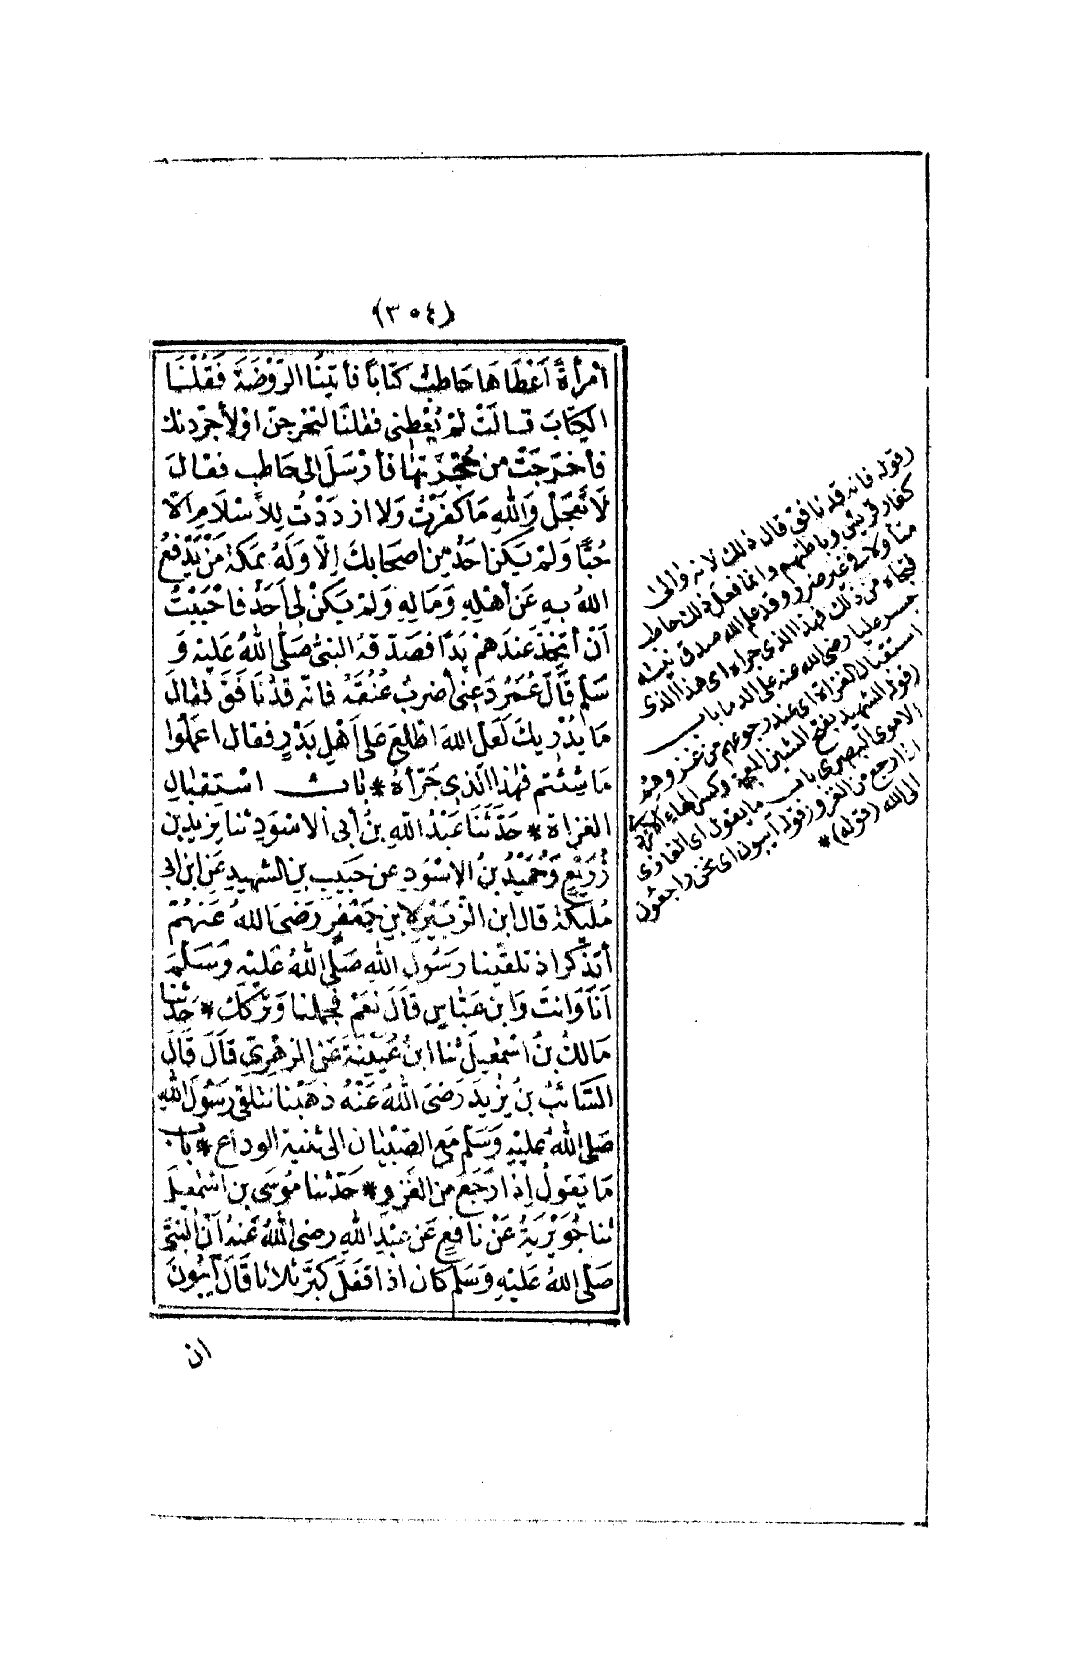 (٣٥٤)
أمْرَأةً أَعْطَاهَا حَاطِبٌ كِتَابًا فَأَتَيْنَا الرَّوْضَةَ فَقُلْنَا
الكِتَابَ قَالَتْ لَمْ يُعْطِنِي فَقُلْنَا لَتُخْرِجِنَّ اوْلَأُجَرِّدَنَّكِ
فَأَخْرَجَتْ مِنْ حُجْزَتِهَا فَأَرْسَلَ إلى حَاطِبٍ فَقَالَ
لَا تَعْجَلْ وَاللهِ مَا كَفَرْتُ وَلَا ازْدَدْتُ لِلْأِسْلَامِ الَّا
حُبًّا وَلَمْ يَكُنْ احَدٌ مِنْ اصْحَابِكَ إِلَّا وَلَهُ بِمَكَّةَ مَنْ يَدْفَعُ
اللهُ بِهِ عَنْ أَهْلِهِ وَمَالِهِ وَلَمْ يَكُنْ لِي أَحَدٌ فَاحْبَبْتُ
أَنْ أَتَّخِذَ عِنْدَهُمْ يَدًا فَصَدَّقَهُ النَّبِيُّ صَلَّى اللهُ عَلَيْهِ وَ
سَلَّمَ قَالَ عُمَرُ دَعْنِي أضْرِبْ عُنُقَهُ فَانَّهُ قَدْ نَافَقَ فَقَالَ
مَا يُدْرِيكَ لَعَلَّ اللهَ اطَّلَعَ عَلَى أَهْلِ بَدْرٍ فَقَالَ اعْمَلُوا
مَا شِئْتُمْ فَهٰذَا الَّذِي جَرَّأَهُ * بَابُ اسْتِقْبَالِ
الغُزَاةِ * حَدَّثَنَا عَبْدُ اللهِ بْنُ أبي الاسْوَدِ ثنا يَزِيدُ بْنُ
زُرَيْعٍ وَحُمَيْدُ بْنُ الاسْوَدِ عَنْ حَبِيبِ بْنِ الشَّهِيدِ عَنِ ابْنِ ابي
مُلَيْكَةَ قَالَ ابْنُ الزُّبَيْرِ لِابْنِ جَعْفَرٍ رَضِيَ اللهُ عَنْهُمْ
أَتَذْكُرُ اذْ تَلَقَّيْنَا رَسُولَ اللهِ صَلَّى اللهُ عَلَيْهِ وَسَلَّمَ
أَنَا وَانْتَ وَابْنُ عَبَّاسٍ قَالَ نَعَمْ فَحَمَلَنَا وَتَرَكَكَ * حَدَّثَنَا
مَالِكُ بْنُ اسْمٰعِيلَ ثنا ابْنُ عُيَيْنَةَ عَنِ الزُّهْرِيِّ قَالَ قَالَ
السَّائِبُ بْنُ يَزِيدَ رَضِيَ اللهُ عَنْهُ ذَهَبْنَا نَتَلَقَّى رَسُولَ اللهِ
صَلَّى اللهُ عَلَيْهِ وَسَلَّمَ مَعَ الصِّبْيَانِ الى ثَنِيَّةِ الوَدَاعِ * بَابُ
مَا يَقُولُ إِذَا رَجَعَ مِنَ الغَزْوِ * حَدَّثَنَا مُوسَى بْنُ اسْمٰعِيلَ
ثنا جُوَيْرِيَةُ عَنْ نَافِعٍ عَنْ عَبْدِ اللهِ رَضِيَ اللهُ عَنْهُ أَنَّ النَّبِيَّ
صَلَّى اللهُ عَلَيْهِ وَسَلَّمَ كَانَ اذَا قَفَلَ كَبَّرَ ثَلَاثًا قَالَ آيِبُونَ
ان
(قوله فانه قد نافق قال ذلك لانه والى
كفار قريش وباطنهم وانما فعل ذلك حاطب
متأولا فى غير ضرر وقد علم الله صدق نيته
فنجاه من ذلك فهذا الذى جرأه اى هذا الذى
جسر عليا رضى الله عنه على الدماء باب
استقبال الغزاة اى عند رجوعهم من غزوهم
(قوله الشهيد بفتح الشين المعجمة وكسر الهاء الازدى
الاموى البصرى باب ما يقول اى الغازى
اذا رجع من الغزو (قوله آيبون اى نحن راجعون
الى الله (قوله) *